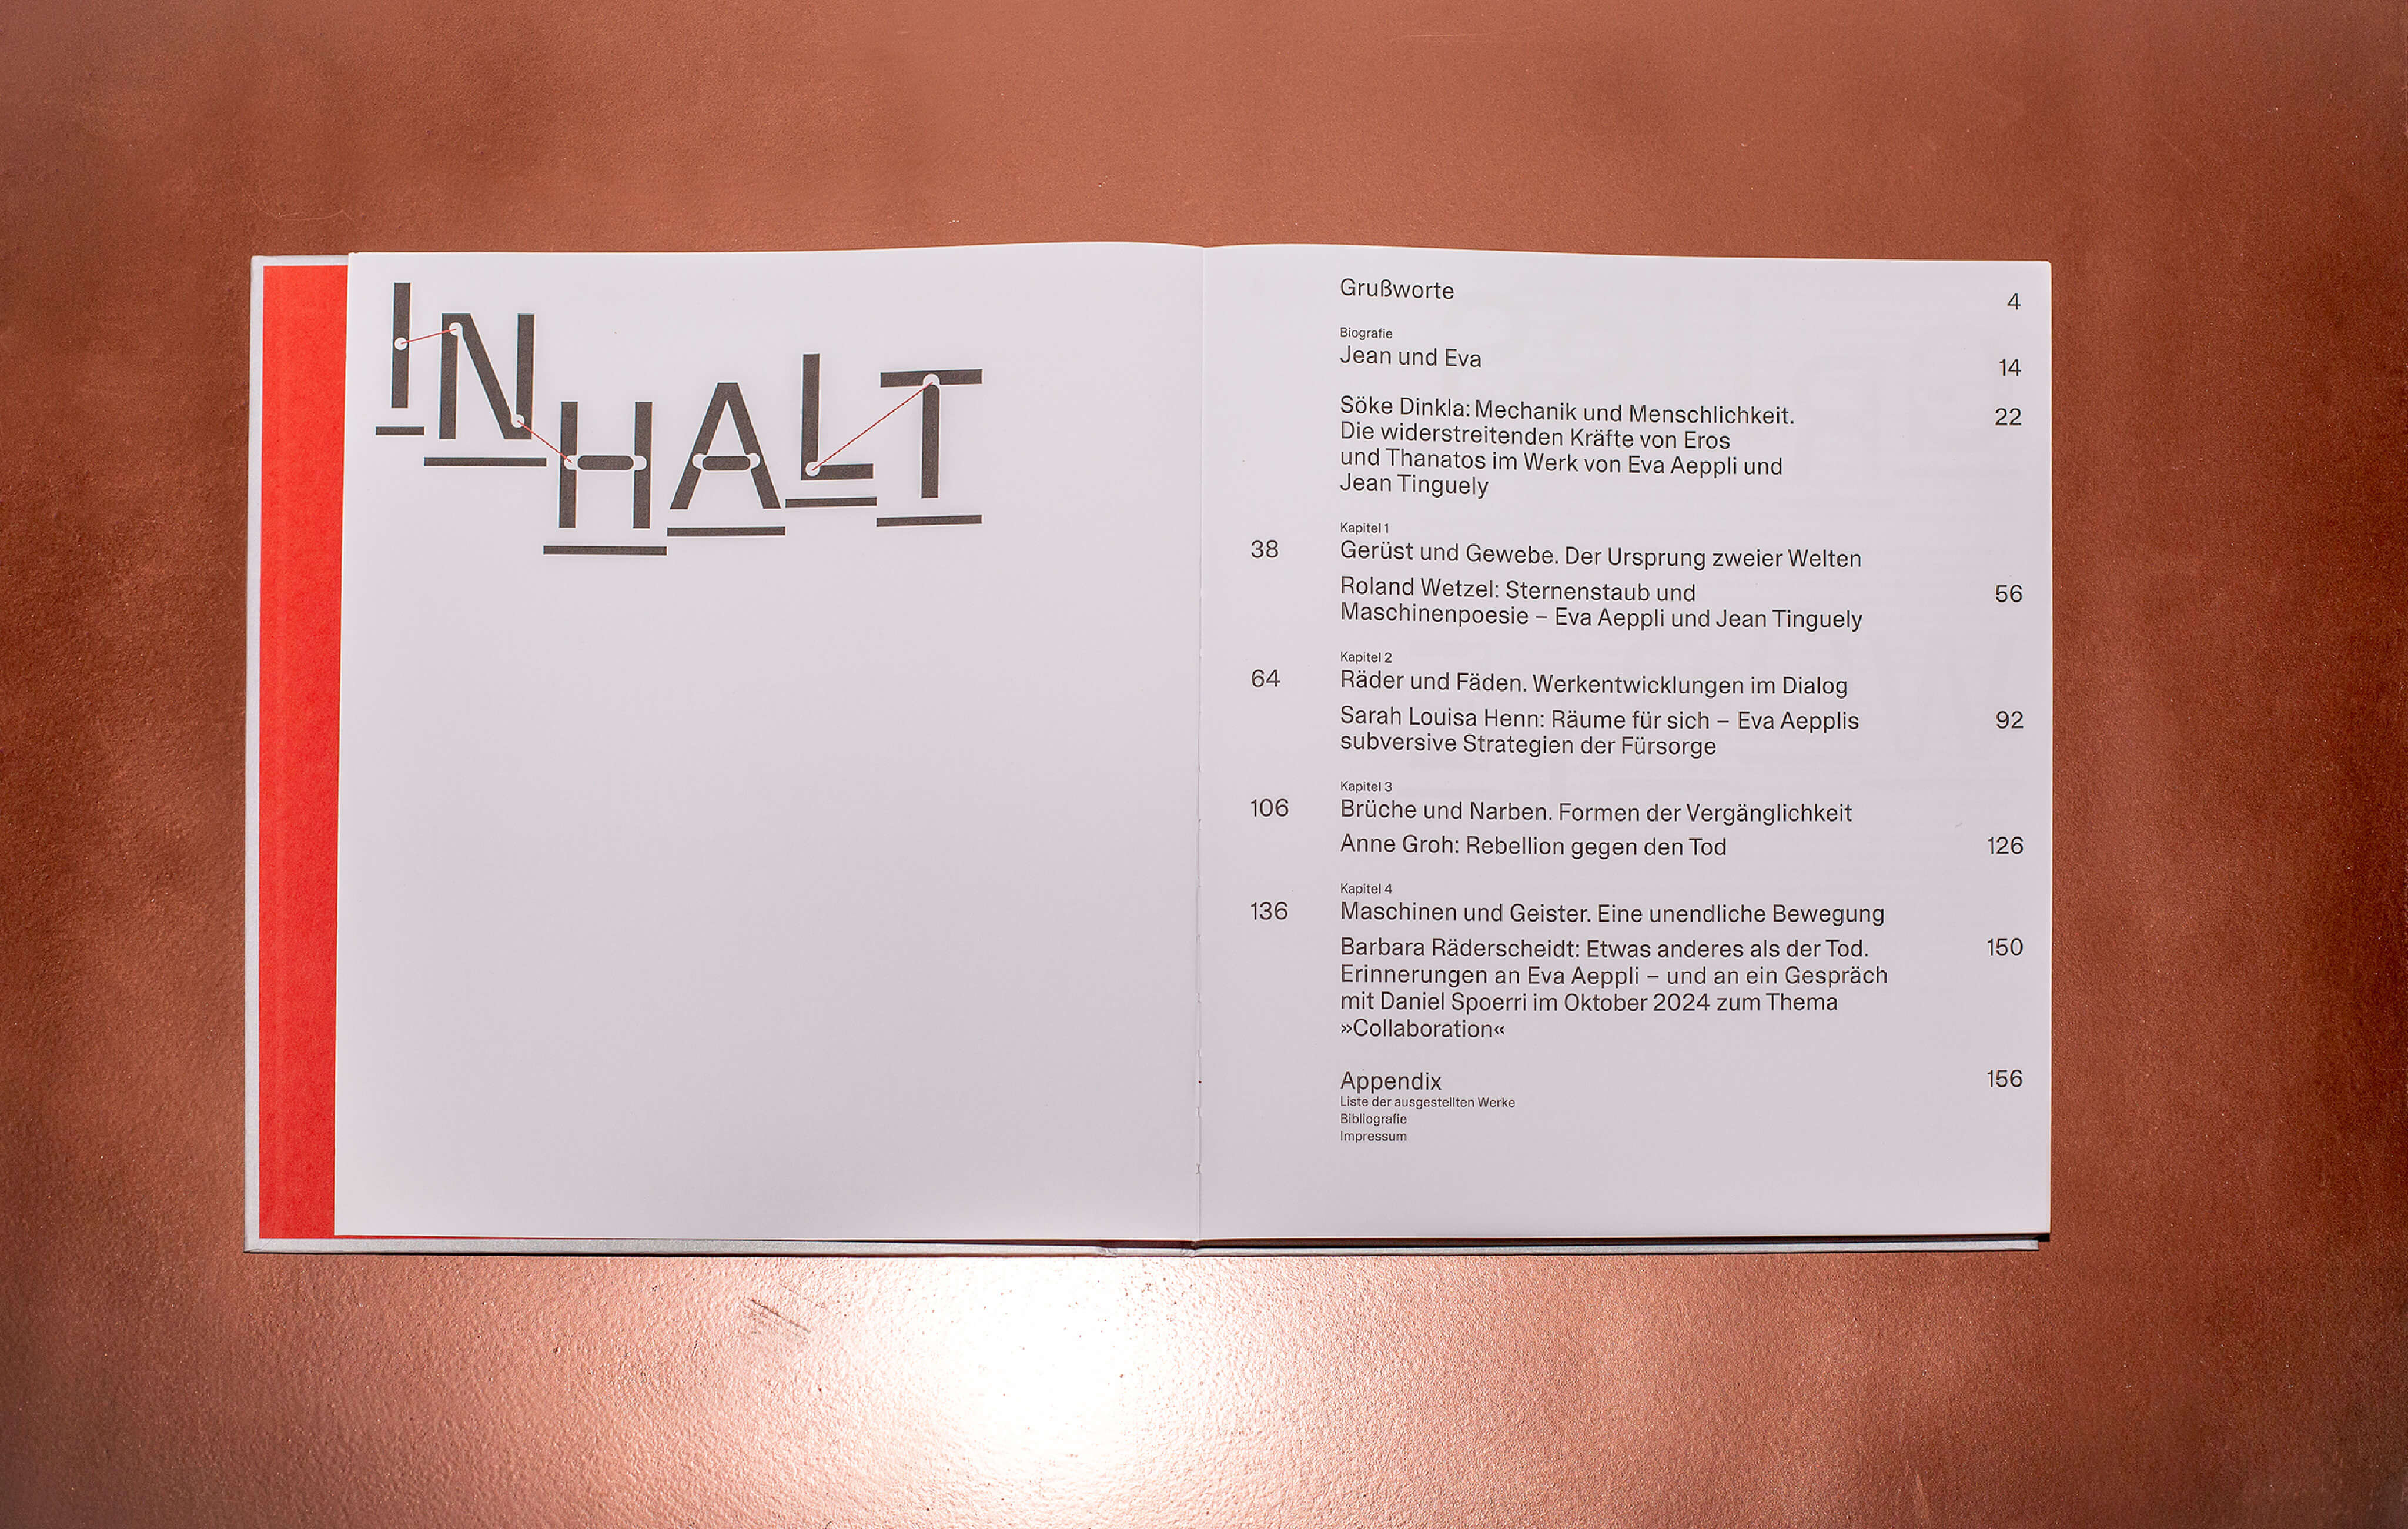 INHALT
Grußworte 4
Biografie
Jean und Eva 14
Söke Dinkla: Mechanik und Menschlichkeit. 22
Die widerstreitenden Kräfte von Eros
und Thanatos im Werk von Eva Aeppli und
Jean Tinguely
Kapitel 1
38 Gerüst und Gewebe. Der Ursprung zweier Welten
Roland Wetzel: Sternenstaub und 56
Maschinenpoesie – Eva Aeppli und Jean Tinguely
Kapitel 2
64 Räder und Fäden. Werkentwicklungen im Dialog
Sarah Louisa Henn: Räume für sich – Eva Aepplis 92
subversive Strategien der Fürsorge
Kapitel 3
106 Brüche und Narben. Formen der Vergänglichkeit
Anne Groh: Rebellion gegen den Tod 126
Kapitel 4
136 Maschinen und Geister. Eine unendliche Bewegung
Barbara Räderscheidt: Etwas anderes als der Tod. 150
Erinnerungen an Eva Aeppli – und an ein Gespräch
mit Daniel Spoerri im Oktober 2024 zum Thema
»Collaboration«
Appendix 156
Liste der ausgestellten Werke
Bibliografie
Impressum